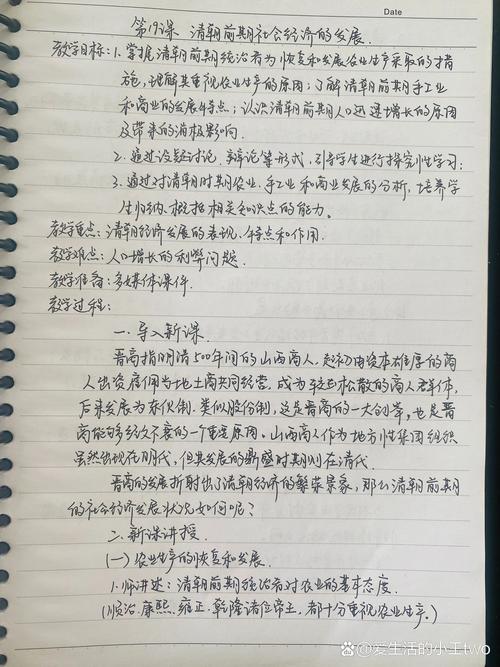 Date
第19课 清朝前期社会经济的发展.
教学目标:1.掌握清朝前期统治者为恢复和发展农业生产采取的措
施,理解其重视农业生产的原因;了解清朝前期手工业
和商业的发展特点;认识清朝前期人口迅速增长的原因
及带来的消极影响.
2.通过设疑讨论、辩论等形式,引导学生进行探究性学习;
3.通过对清朝时期农业、手工业和商业发展的分析,培养学
生归纳、概括相关知识点的能力。
教学重点:清朝经济发展的表现、特点和作用.
教学难点:人口增长的利弊问题.
教学准备:多媒体课件.
教学过程:
一.导入新课.
晋商指明清500年间的山西商人,起初由资本雄厚的商
人出资雇佣当地土商共同经营,成为较松散的商人群体,
后来发展为东伙制.类似股份制,这是晋商的一大创举,也是晋
商能够经久不衰的一个重要原因。山西商人作为地方性集团组织
虽然出现在明代,但其发展的鼎盛时期则在清代.
晋商的发展折射出了清朝经济的繁荣景象,那么清朝前期
的社会经济发展状况如何呢?
二.新课讲授.
(一)农业生产的恢复和发展.
1.师讲述:清朝前期统治者对农业的基本态度.
(顺治.康熙.雍正.乾隆诸位帝王,都十分重视农业生产。)
@爱生活的小王two